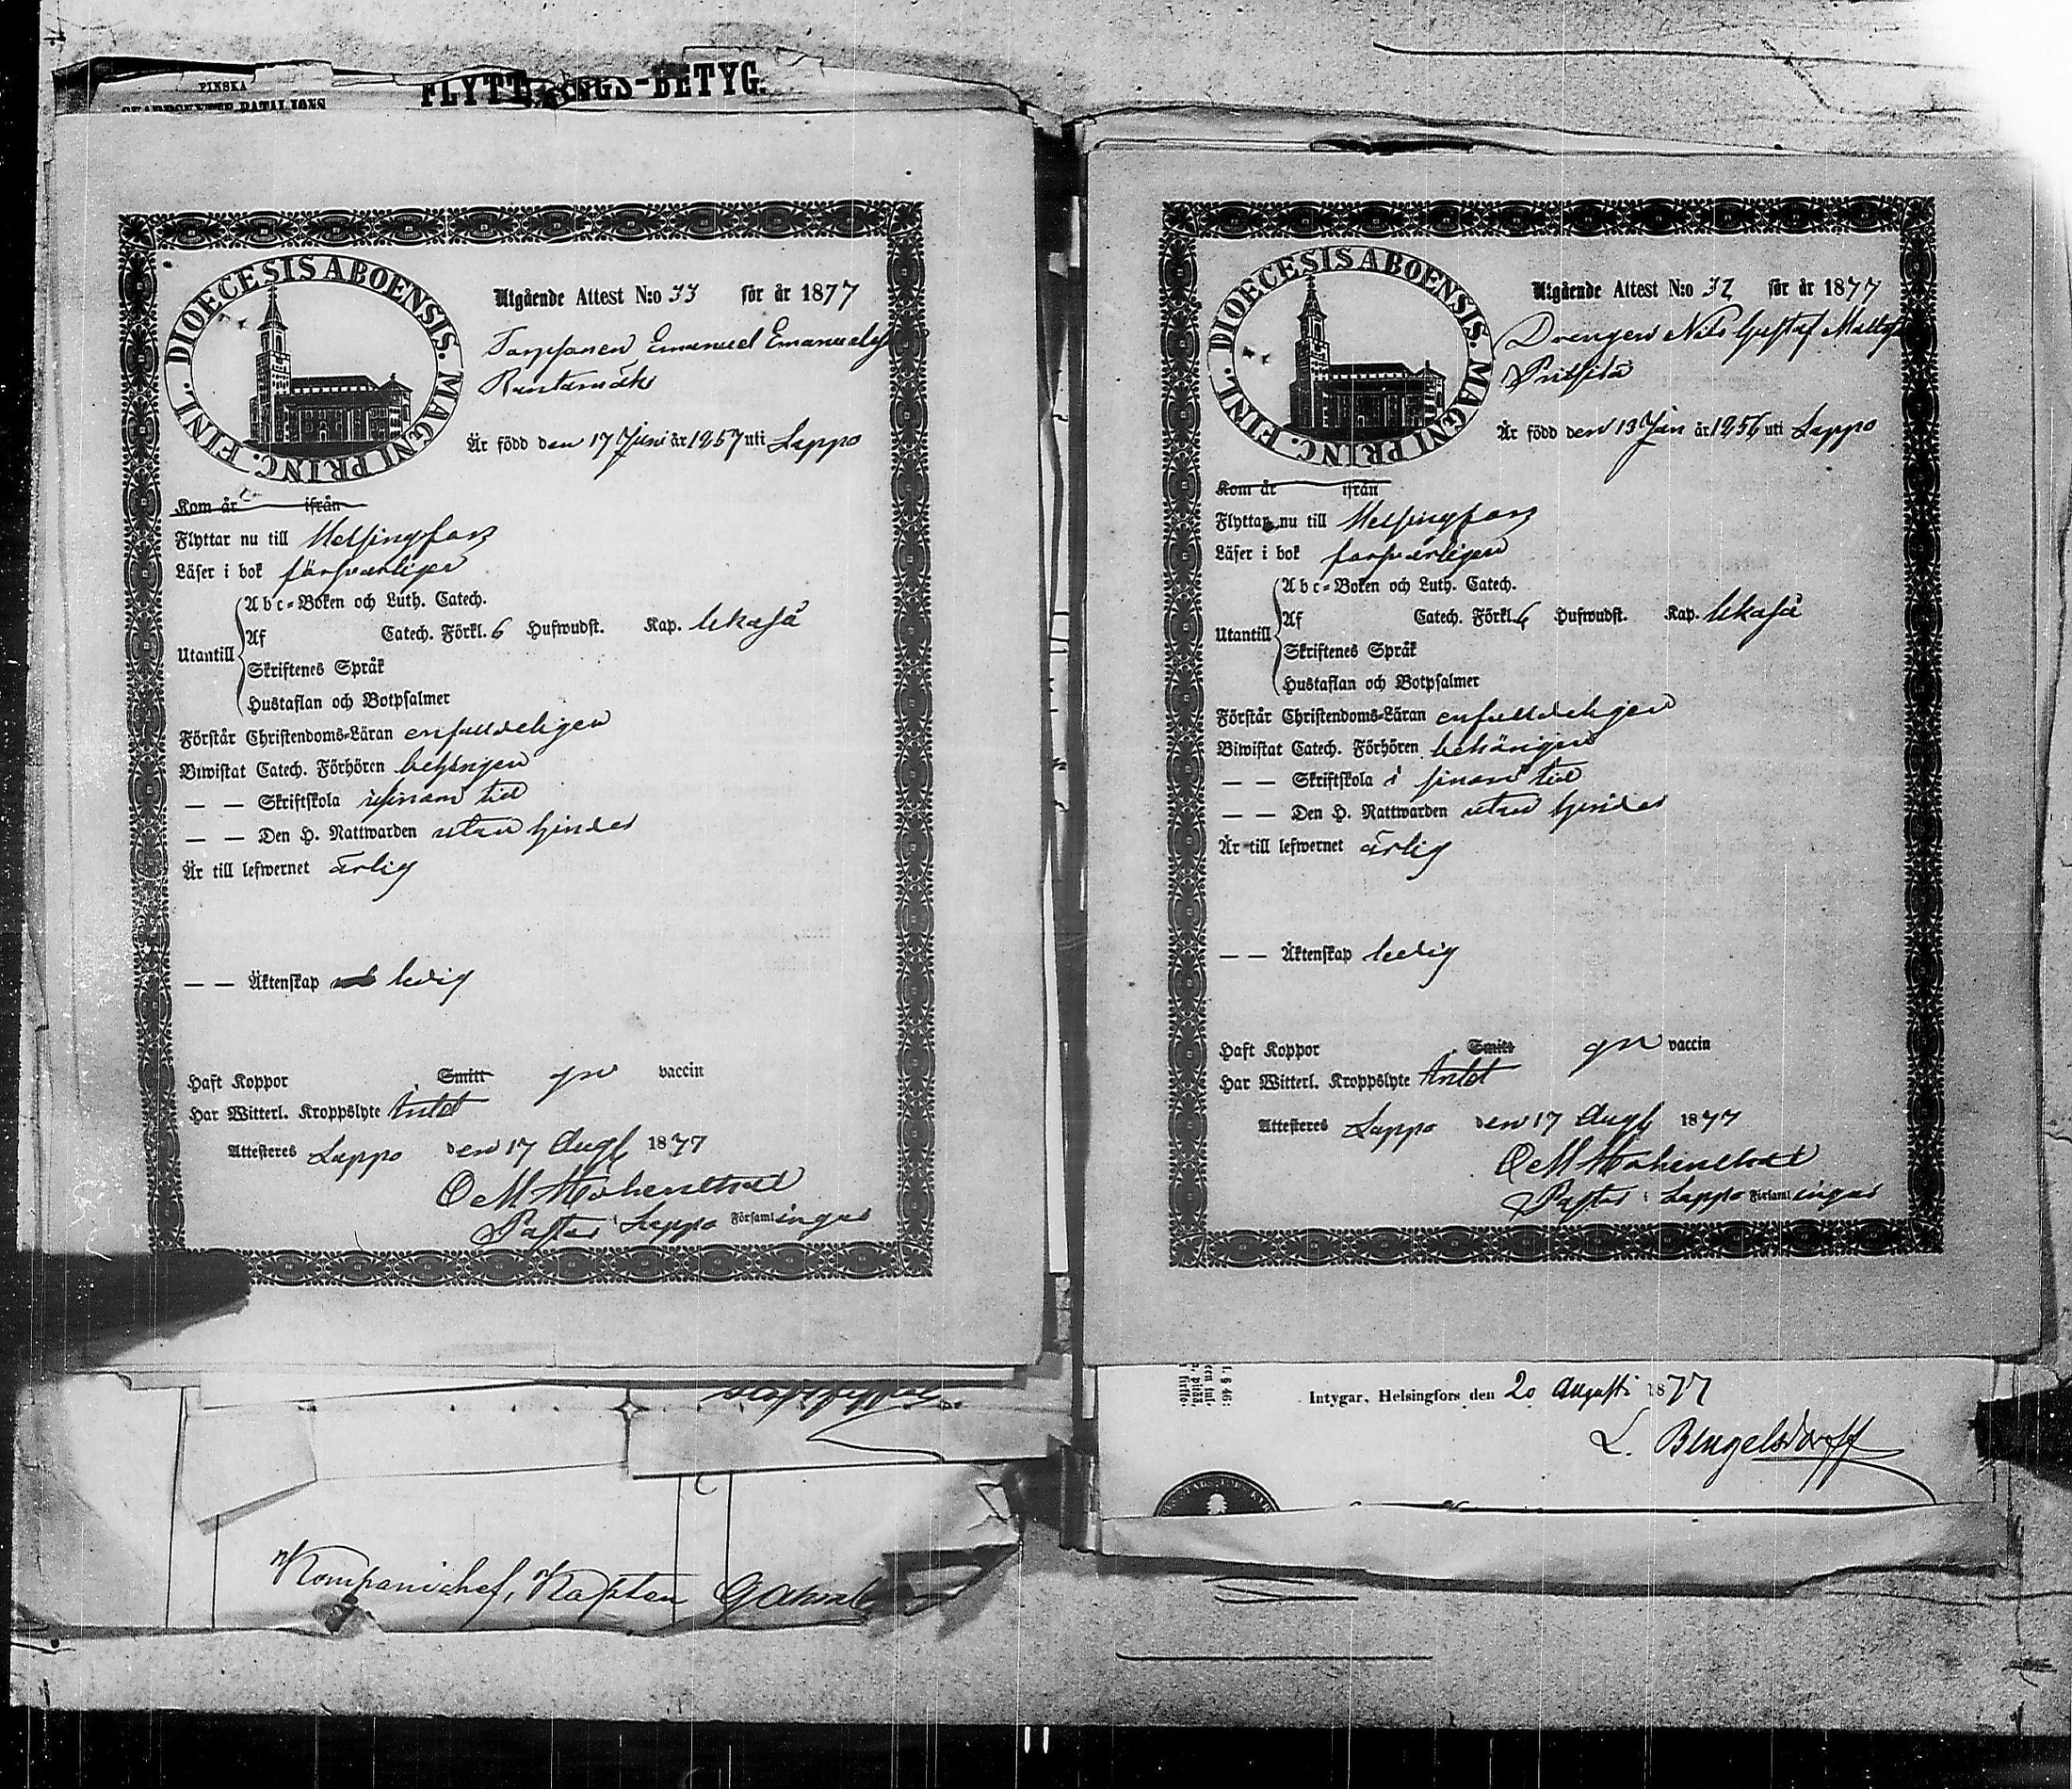 FINSKA
SKARPSKYTTE BATALJONS
FLYTTNINGS-BETYG.
DIOECESIS ABOENSIS. MAGNI PRINC. FINL.
Utgående Attest N:o 33 för år 1877
Torpsonen Emanuel Emanuels
Rantamäki
Är född den 17 Juni år 1857 uti Lappo
Kom år ifrån
Flyttar nu till Helsingfors
Läser i bok försvarligen
Abc-Boken och Luth. Catech.
Utantill Af Catech. Förkl. 6 Hufwudst. Kap. likaså
Skriftenes Språk
Hustaflan och Botpsalmer
Förstår Christendoms-Läran enfaldeligen
Biwistat Catech. Förhören behörigen
— — Skriftskola i sinom tid
— — Den H. Nattwarden utan hinder
Är till lefwernet ärlig
— — Äktenskap ledig
Haft Koppor Smitt gn vaccin
Har Witterl. Kroppslyte intet
Attesteres Lappo den 17 Aug 1877
Pastor i Lappo Församlingar
Kompanichef, Kapten
DIOECESIS ABOENSIS. MAGNI PRINC. FINL.
Utgående Attest N:o 32 för år 1877
Drengen Nils Gustaf Matts
Är född den 13 Jan år 1856 uti Lappo
Kom år ifrån
Flyttar nu till Helsingfors
Läser i bok försvarligen
Abc-Boken och Luth. Catech.
Utantill Af Catech. Förkl. 6 Hufwudst. Kap. likaså
Skriftenes Språk
Hustaflan och Botpsalmer
Förstår Christendoms-Läran enfaldeligen
Biwistat Catech. Förhören behörigen
— — Skriftskola i sinom tid
— — Den H. Nattwarden utan hinder
Är till lefwernet ärlig
— — Äktenskap ledig
Haft Koppor Smitt gn vaccin
Har Witterl. Kroppslyte intet
Attesteres Lappo den 17 Aug 1877
Pastor i Lappo Församlingar
Intygar, Helsingfors den 20 Augusti 1877
L. Bengelsdorff